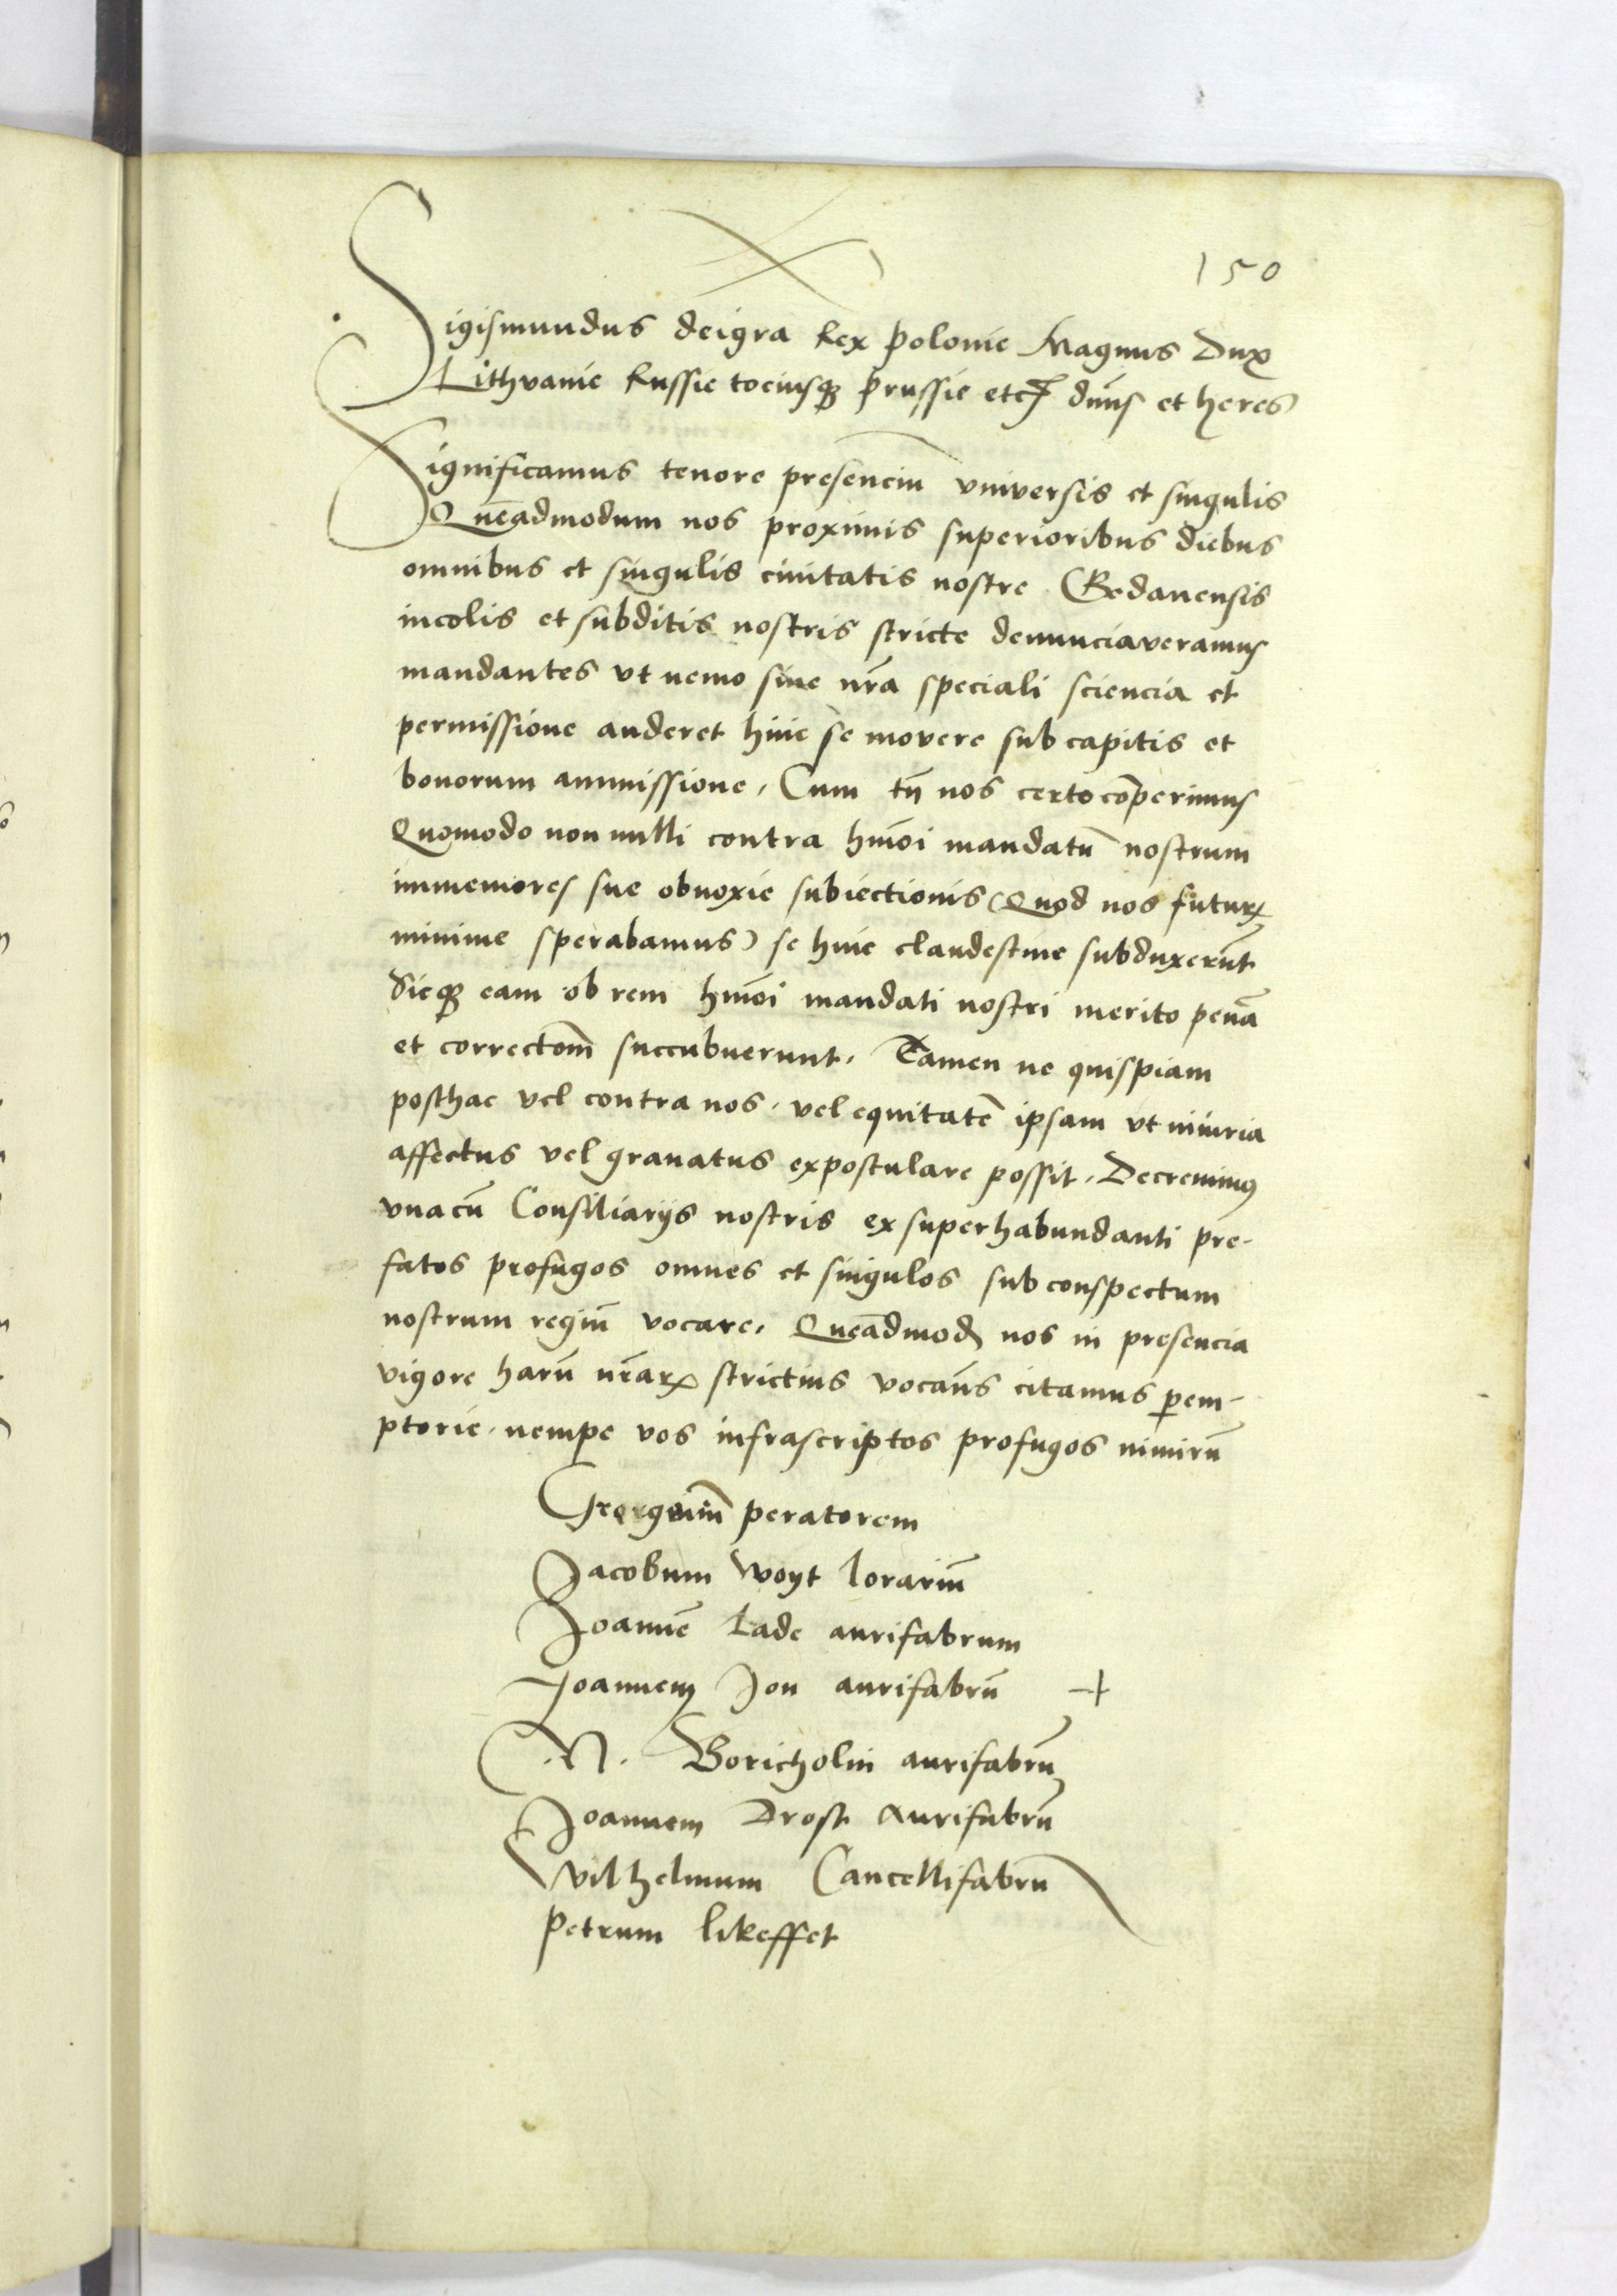 150
Sigismundus deigra Rex Polonie Magnus Dux
Lithvanie Russie tociusq Prussie etc dn̄s et heres
Significamus tenore presenciū vniversis et singulis
Quēadmodum nos proximis superioribus diebus
omnibus et singulis civitatis nostre Gedanensis
incolis et subditis nostris stricte denunciaveramus
mandantes vt nemo sine nr̄a speciali sciencia et
permissione auderet hinc se movere sub capitis et
bonorum ammissione, Cum tn̄ nos certo cōperimus
Quomodo non nulli contra hmōi mandatū nostrum
immemores sue obnoxie subiectionis (Quod nos futurꝝ
minime sperabamus) se hinc clandestine subduxerūt
Sicqꝫ eam ob rem hmōi mandati nostri merito penā
et correctōm̄ succubuerunt. Tamen ne quispiam
posthac vel contra nos, vel equitatē ipsam vt iniuria
affectus vel gravatus expostulare possit, Decrevimus
vnacū Consiliarijs nostris ex superhabundanti pre-
fatos profugos omnes et singulos sub conspectum
nostrum regiū vocare, Quēadmodꝫ nos in presencia
vigore harū nr̄arꝝ strictius vocan̄s citamus pem-
ptorie, nempe vos infrascriptos profugos nimirū
Georgium̄ peratorem
Jacobum Woyt lorariū
Joannē Lade aurifabrum
Joannem Jon aurifabrū +
.N. Boricholm aurifabrū
Joannem Drost aurifabrū
Wilhelmum Cancellifabrū
Petrum likeffet